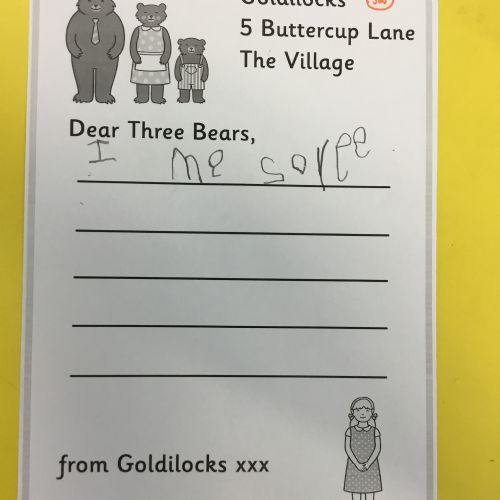 Goldilocks
5 Buttercup Lane
The Village
Dear Three Bears,
I me soree
from Goldilocks xxx